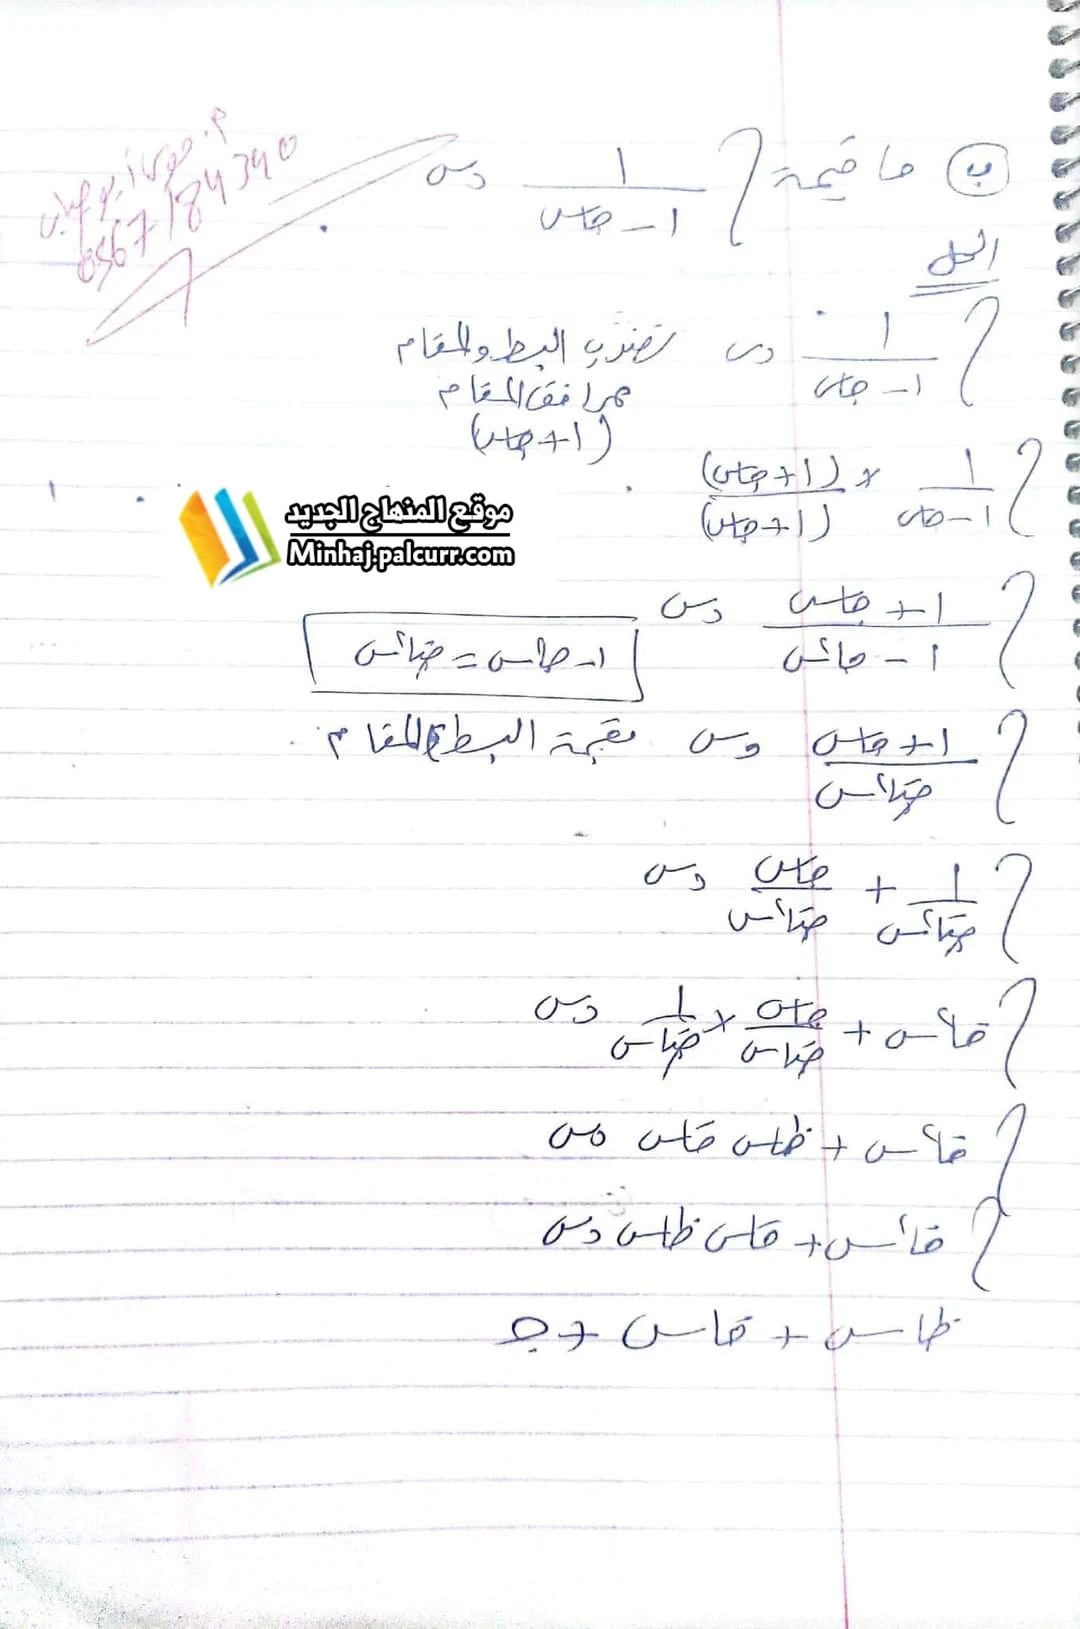 ب ما قيمة ∫ ١/(١ - جاس) دس
0567184340
الحل
∫ ١/(١ - جاس) دس نضرب البسط والمقام
بمرافق المقام
(١ + جاس)
∫ ١/(١ - جاس) × (١ + جاس)/(١ + جاس)
موقع المنهاج الجديد
Minhaj.palcurr.com
∫ (١ + جاس)/(١ - جا²س) دس
١ - جا²س = جتا²س
∫ (١ + جاس)/جتا²س دس نقسمة البسط ع المقام
∫ ١/جتا²س + جاس/جتا²س دس
∫ قا²س + جاس/جتاس × ١/جتاس دس
∫ قا²س + ظاس قاس دس
∫ قا²س + قاس ظاس دس
ظاس + قاس + جـ